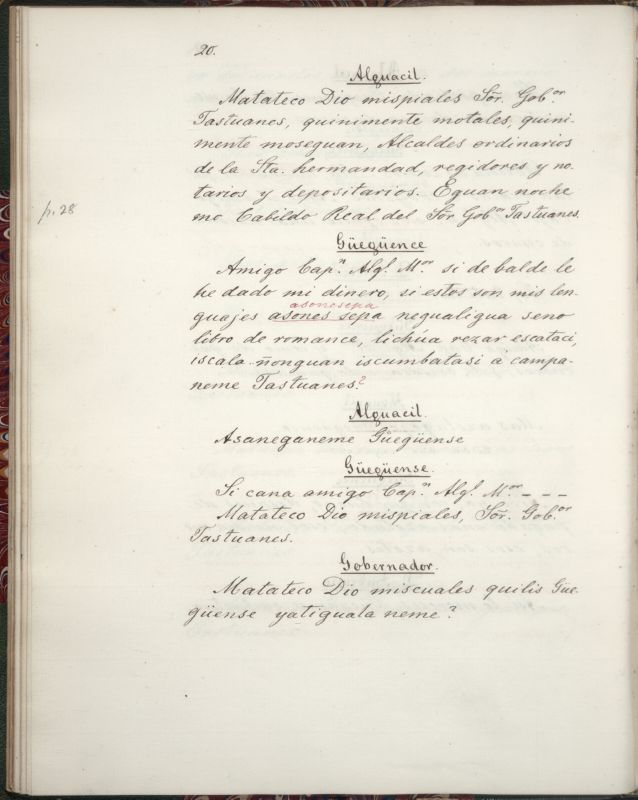 20.
Alguacil.
Matateco Dio mispiales Sōr. Gob.or
Tastuanes, quinimente motales, quini-
mente moseguan, Alcaldes ordinarios
de la Sta. hermandad, regidores y no-
tarios y depositarios. Eguan noche
mo Cabildo Real del Sōr Gob.or Tastuanes.
p. 28
Güegüence
Amigo Cap.n Alg.l M.or si de balde le
he dado mi dinero, si estos son mis len-
asonesepa
guajes asones sepa negualigua seno
libro de romance, lichúa rezar escataci,
iscala-ñonguan iscumbatasi á campa-
neme Tastuanes?
Alguacil.
Asaneganeme Güegüense
Güegüense.
Si cana amigo Cap.n Alg.l M.or - - -
Matateco Dio mispiales, Sōr. Gob.or
Tastuanes.
Gobernador.
Matateco Dio miscuales quilis Güe-
güense yatiguala neme?